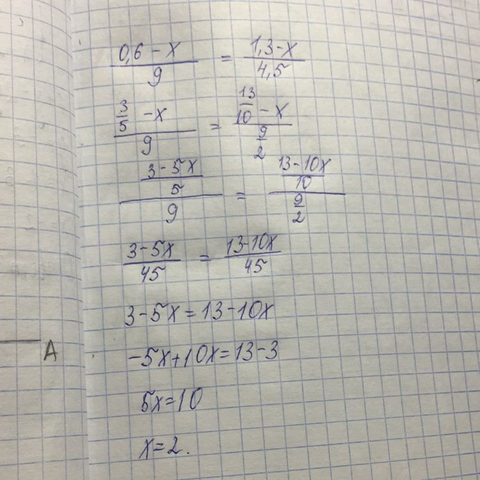 (0,6 - x)/9 = (1,3 - x)/4,5
(3/5 - x)/9 = (13/10 - x)/(9/2)
((3 - 5x)/5)/9 = ((13 - 10x)/10)/(9/2)
(3 - 5x)/45 = (13 - 10x)/45
3 - 5x = 13 - 10x
-5x + 10x = 13 - 3
5x = 10
x = 2.
A